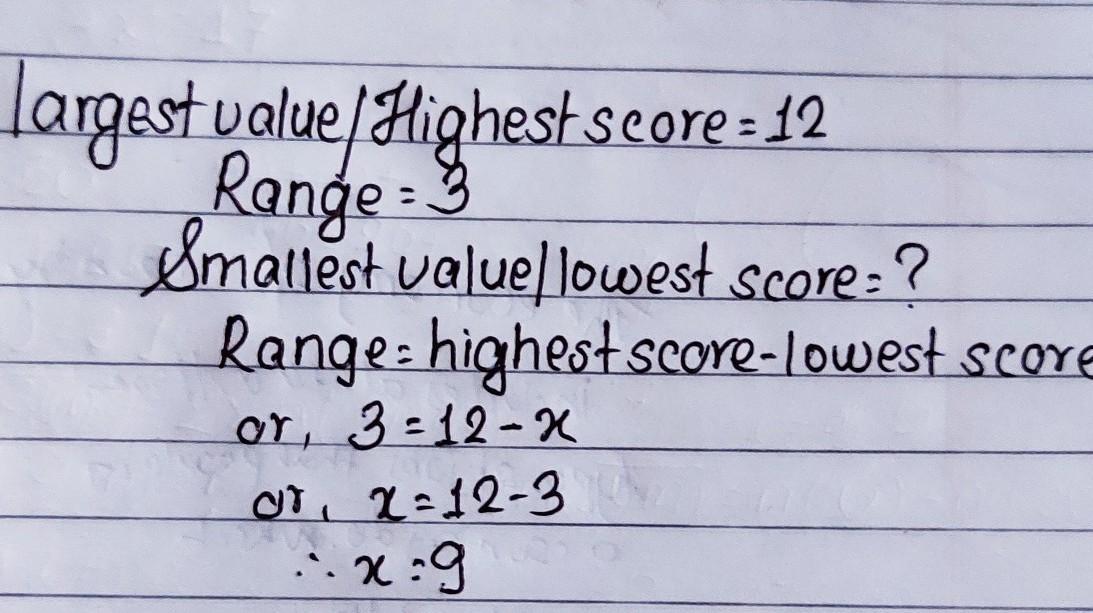 largest value/Highest score = 12
Range = 3
Smallest value/lowest score = ?
Range = highest score - lowest score
or, 3 = 12 - x
or, x = 12 - 3
∴ x = 9